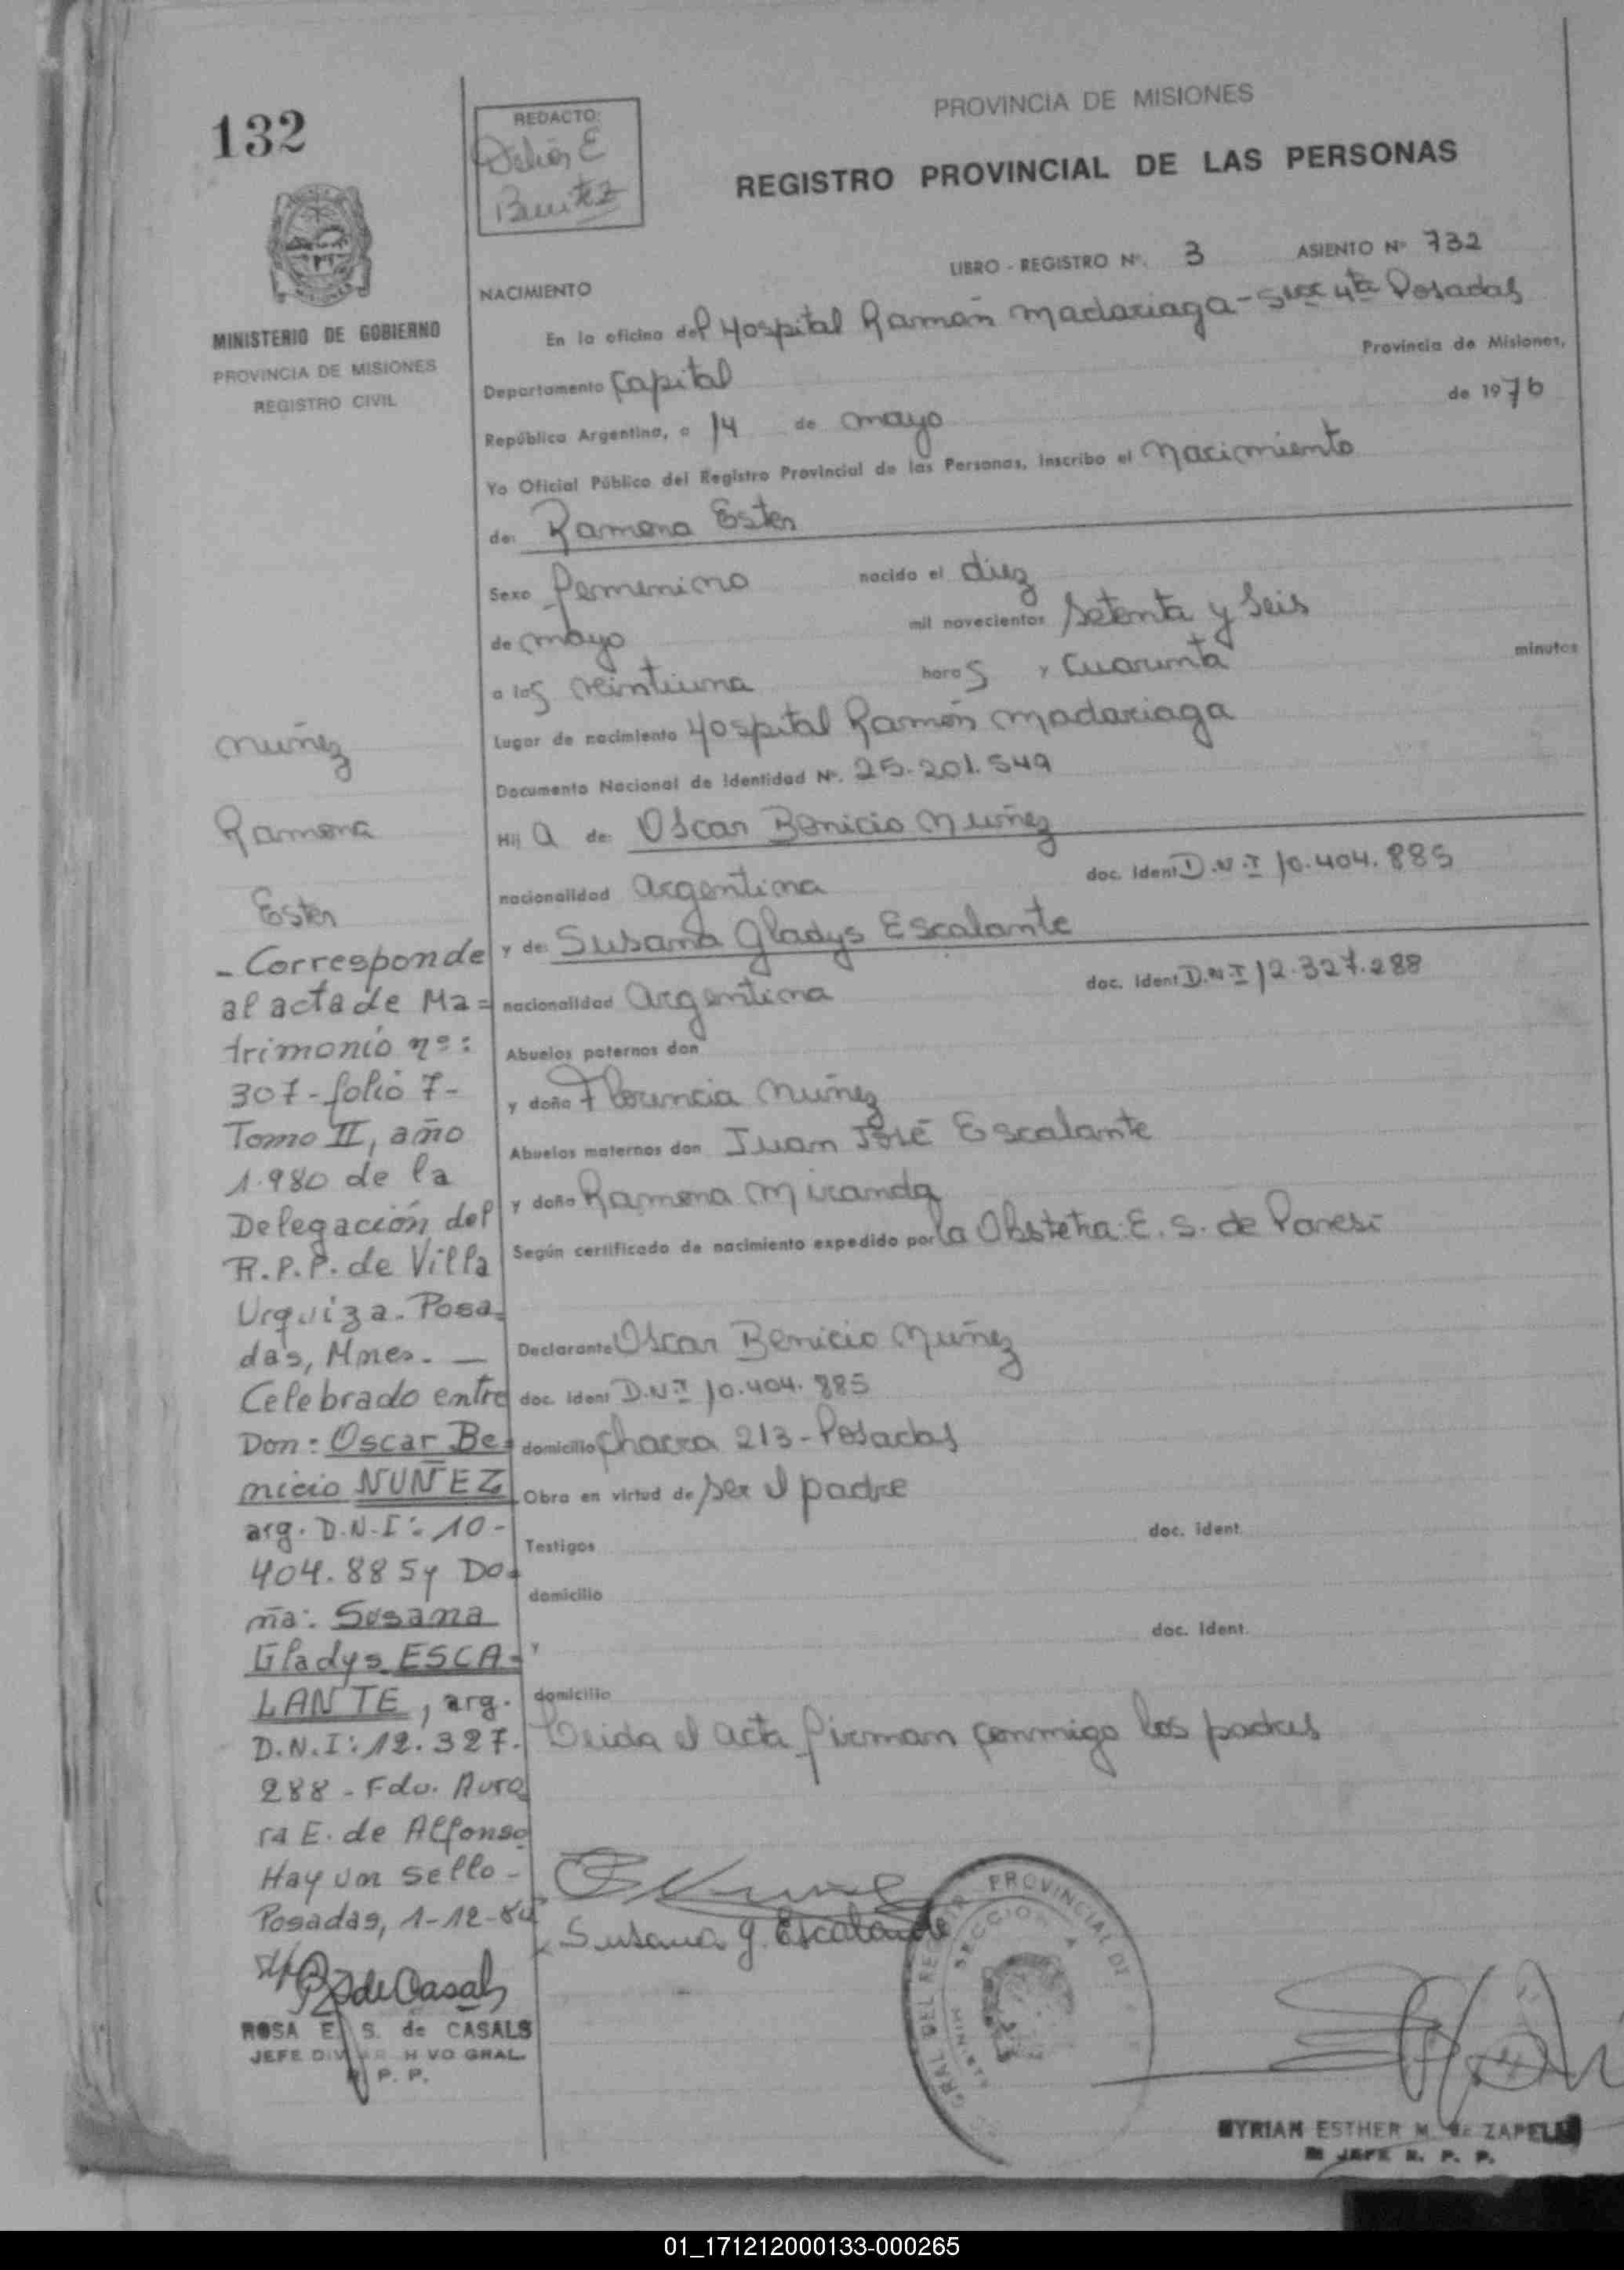 132
REDACTO:
E
Benitez
PROVINCIA DE MISIONES
REGISTRO PROVINCIAL DE LAS PERSONAS
LIBRO - REGISTRO Nº. 3 ASIENTO Nº 732
MINISTERIO DE GOBIERNO
PROVINCIA DE MISIONES
REGISTRO CIVIL
NACIMIENTO
En la oficina del Hospital Ramón Madariaga - Secc 4ta Posadas
Departamento Capital Provincia de Misiones,
República Argentina, a 14 de mayo de 1976
Yo Oficial Público del Registro Provincial de las Personas, inscribo el Nacimiento
de: Ramona Ester
Sexo femenino nacido el diez
de mayo mil novecientos setenta y seis
a las veintiuna horas y cuarenta minutos
Lugar de nacimiento Hospital Ramón Madariaga
Documento Nacional de Identidad Nº. 25.201.549
Hij a de: Oscar Benicio Nuñez
nacionalidad argentina doc. Ident D.N.I 10.404.885
y de: Susana Gladys Escalante
nacionalidad argentina doc. Ident D.N.I 12.327.288
Abuelos paternos don
y doña Florencia Nuñez
Abuelos maternos don Juan José Escalante
y doña Ramona Miranda
Según certificado de nacimiento expedido por la Obstetra: E. S. de Paresi
Declarante Oscar Benicio Nuñez
doc. ident D.N.I 10.404.885
domicilio Chacra 213 - Posadas
Obra en virtud de ser el padre
Testigos doc. ident.
domicilio
y doc. Ident.
domicilio
Leida el acta firman conmigo los padres
Nuñez
Ramona
Ester
- Corresponde
al acta de Ma=
trimonio nº:
307 - folio 7 -
Tomo II, año
1.980 de la
Delegación del
R.P.P. de Villa
Urquiza. Posa=
das, Mnes. —
Celebrado entre
Don: Oscar Be=
nicio NUÑEZ
arg. D.N.I: 10-
404.885 y Do=
ña: Susana
Gladys ESCA=
LANTE, arg.
D.N.I: 12.327.
288 - Fdo. Auro
ra E. de Alfonso
Hay un sello -
Posadas, 1-12-84
de Casals
ROSA E. S. de CASALS
JEFE DIV ARCHIVO GRAL.
R. P. P.
Susana G. Escalante
GRAL DEL REGISTR PROVINCIAL DE
SECCION
MYRIAM ESTHER M. de ZAPELLI
JEFE R. P. P.
01_171212000133-000265